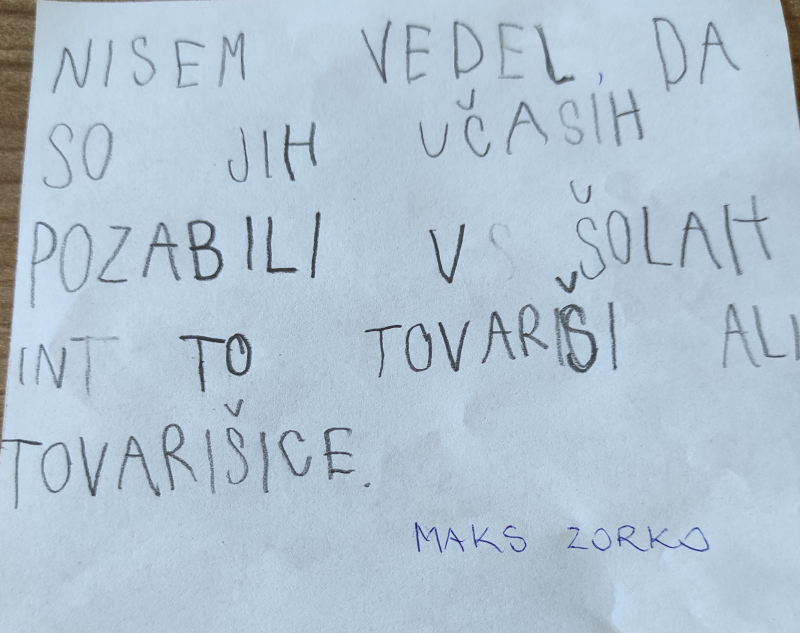 NISEM VEDEL, DA
SO JIH UČASIH
POZABILI V ŠOLAH
INT TO TOVARIŠI ALI
TOVARIŠICE.
MAKS ZORKO